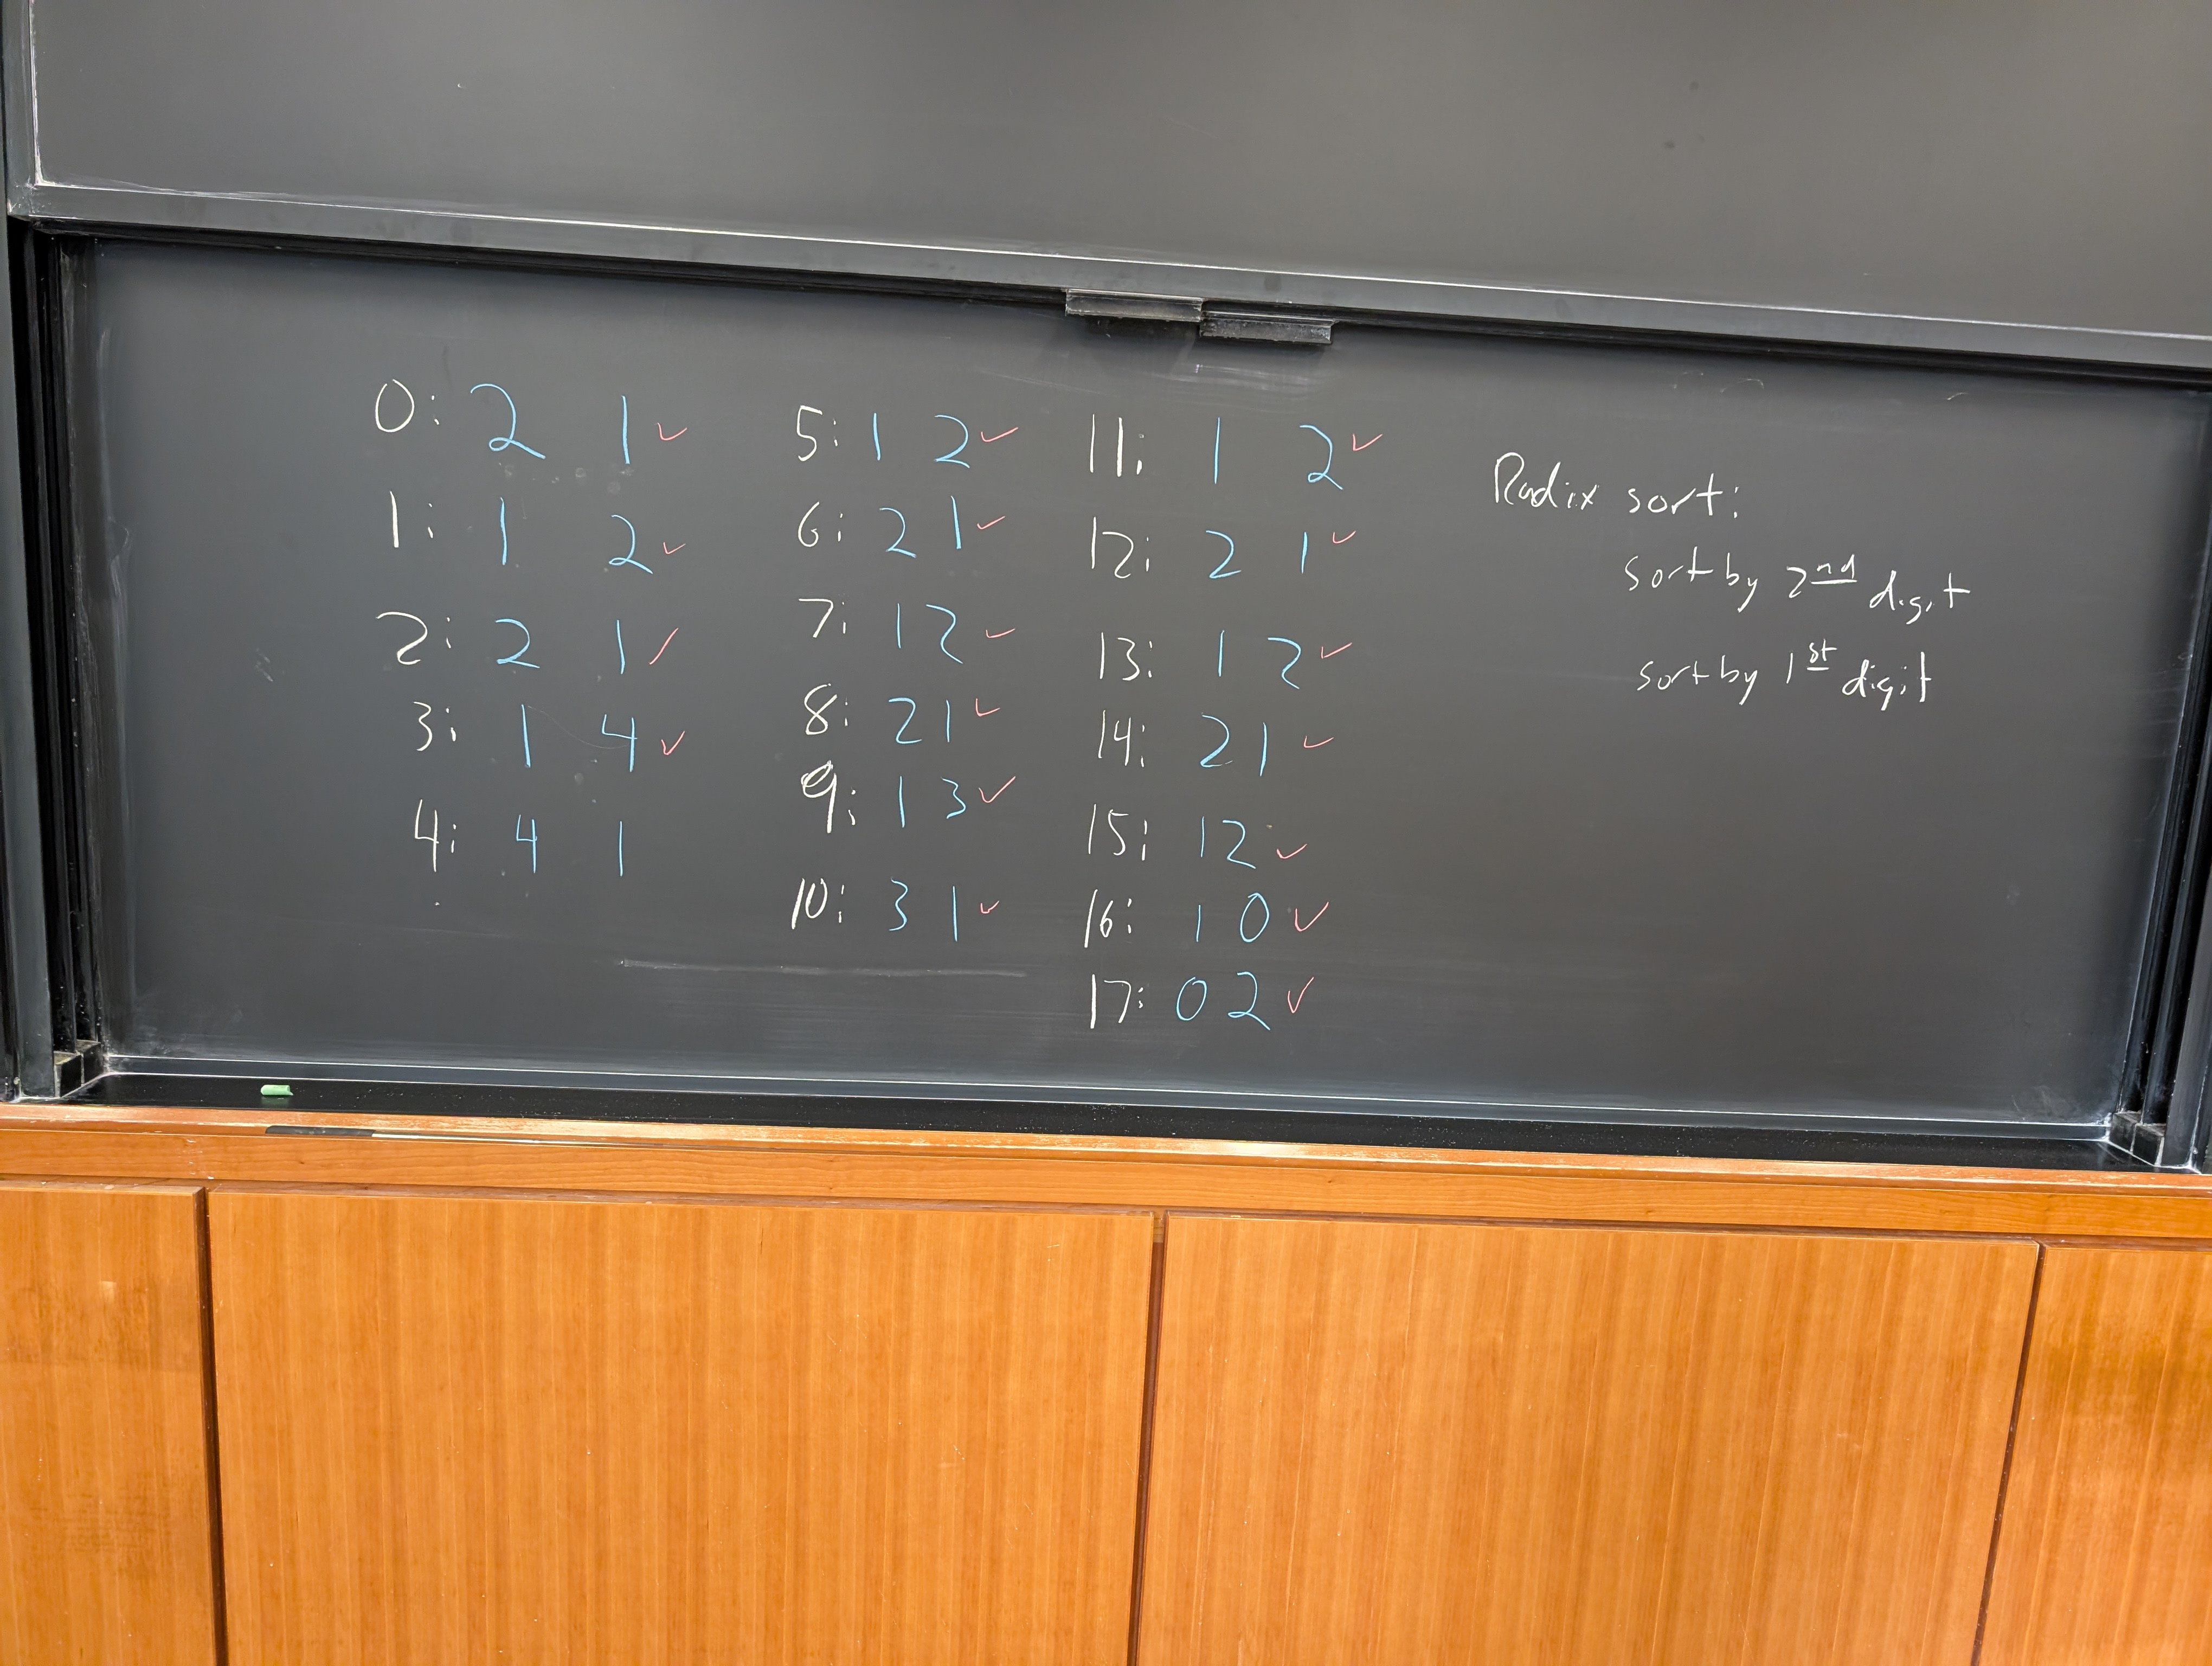 0: 2 1 ✓
1: 1 2 ✓
2: 2 1 ✓
3: 1 4 ✓
4: 4 1
5: 1 2 ✓
6: 2 1 ✓
7: 1 2 ✓
8: 2 1 ✓
9: 1 3 ✓
10: 3 1 ✓
11: 1 2 ✓
12: 2 1 ✓
13: 1 2 ✓
14: 2 1 ✓
15: 1 2 ✓
16: 1 0 ✓
17: 0 2 ✓
Radix sort:
sort by 2nd digit
sort by 1st digit